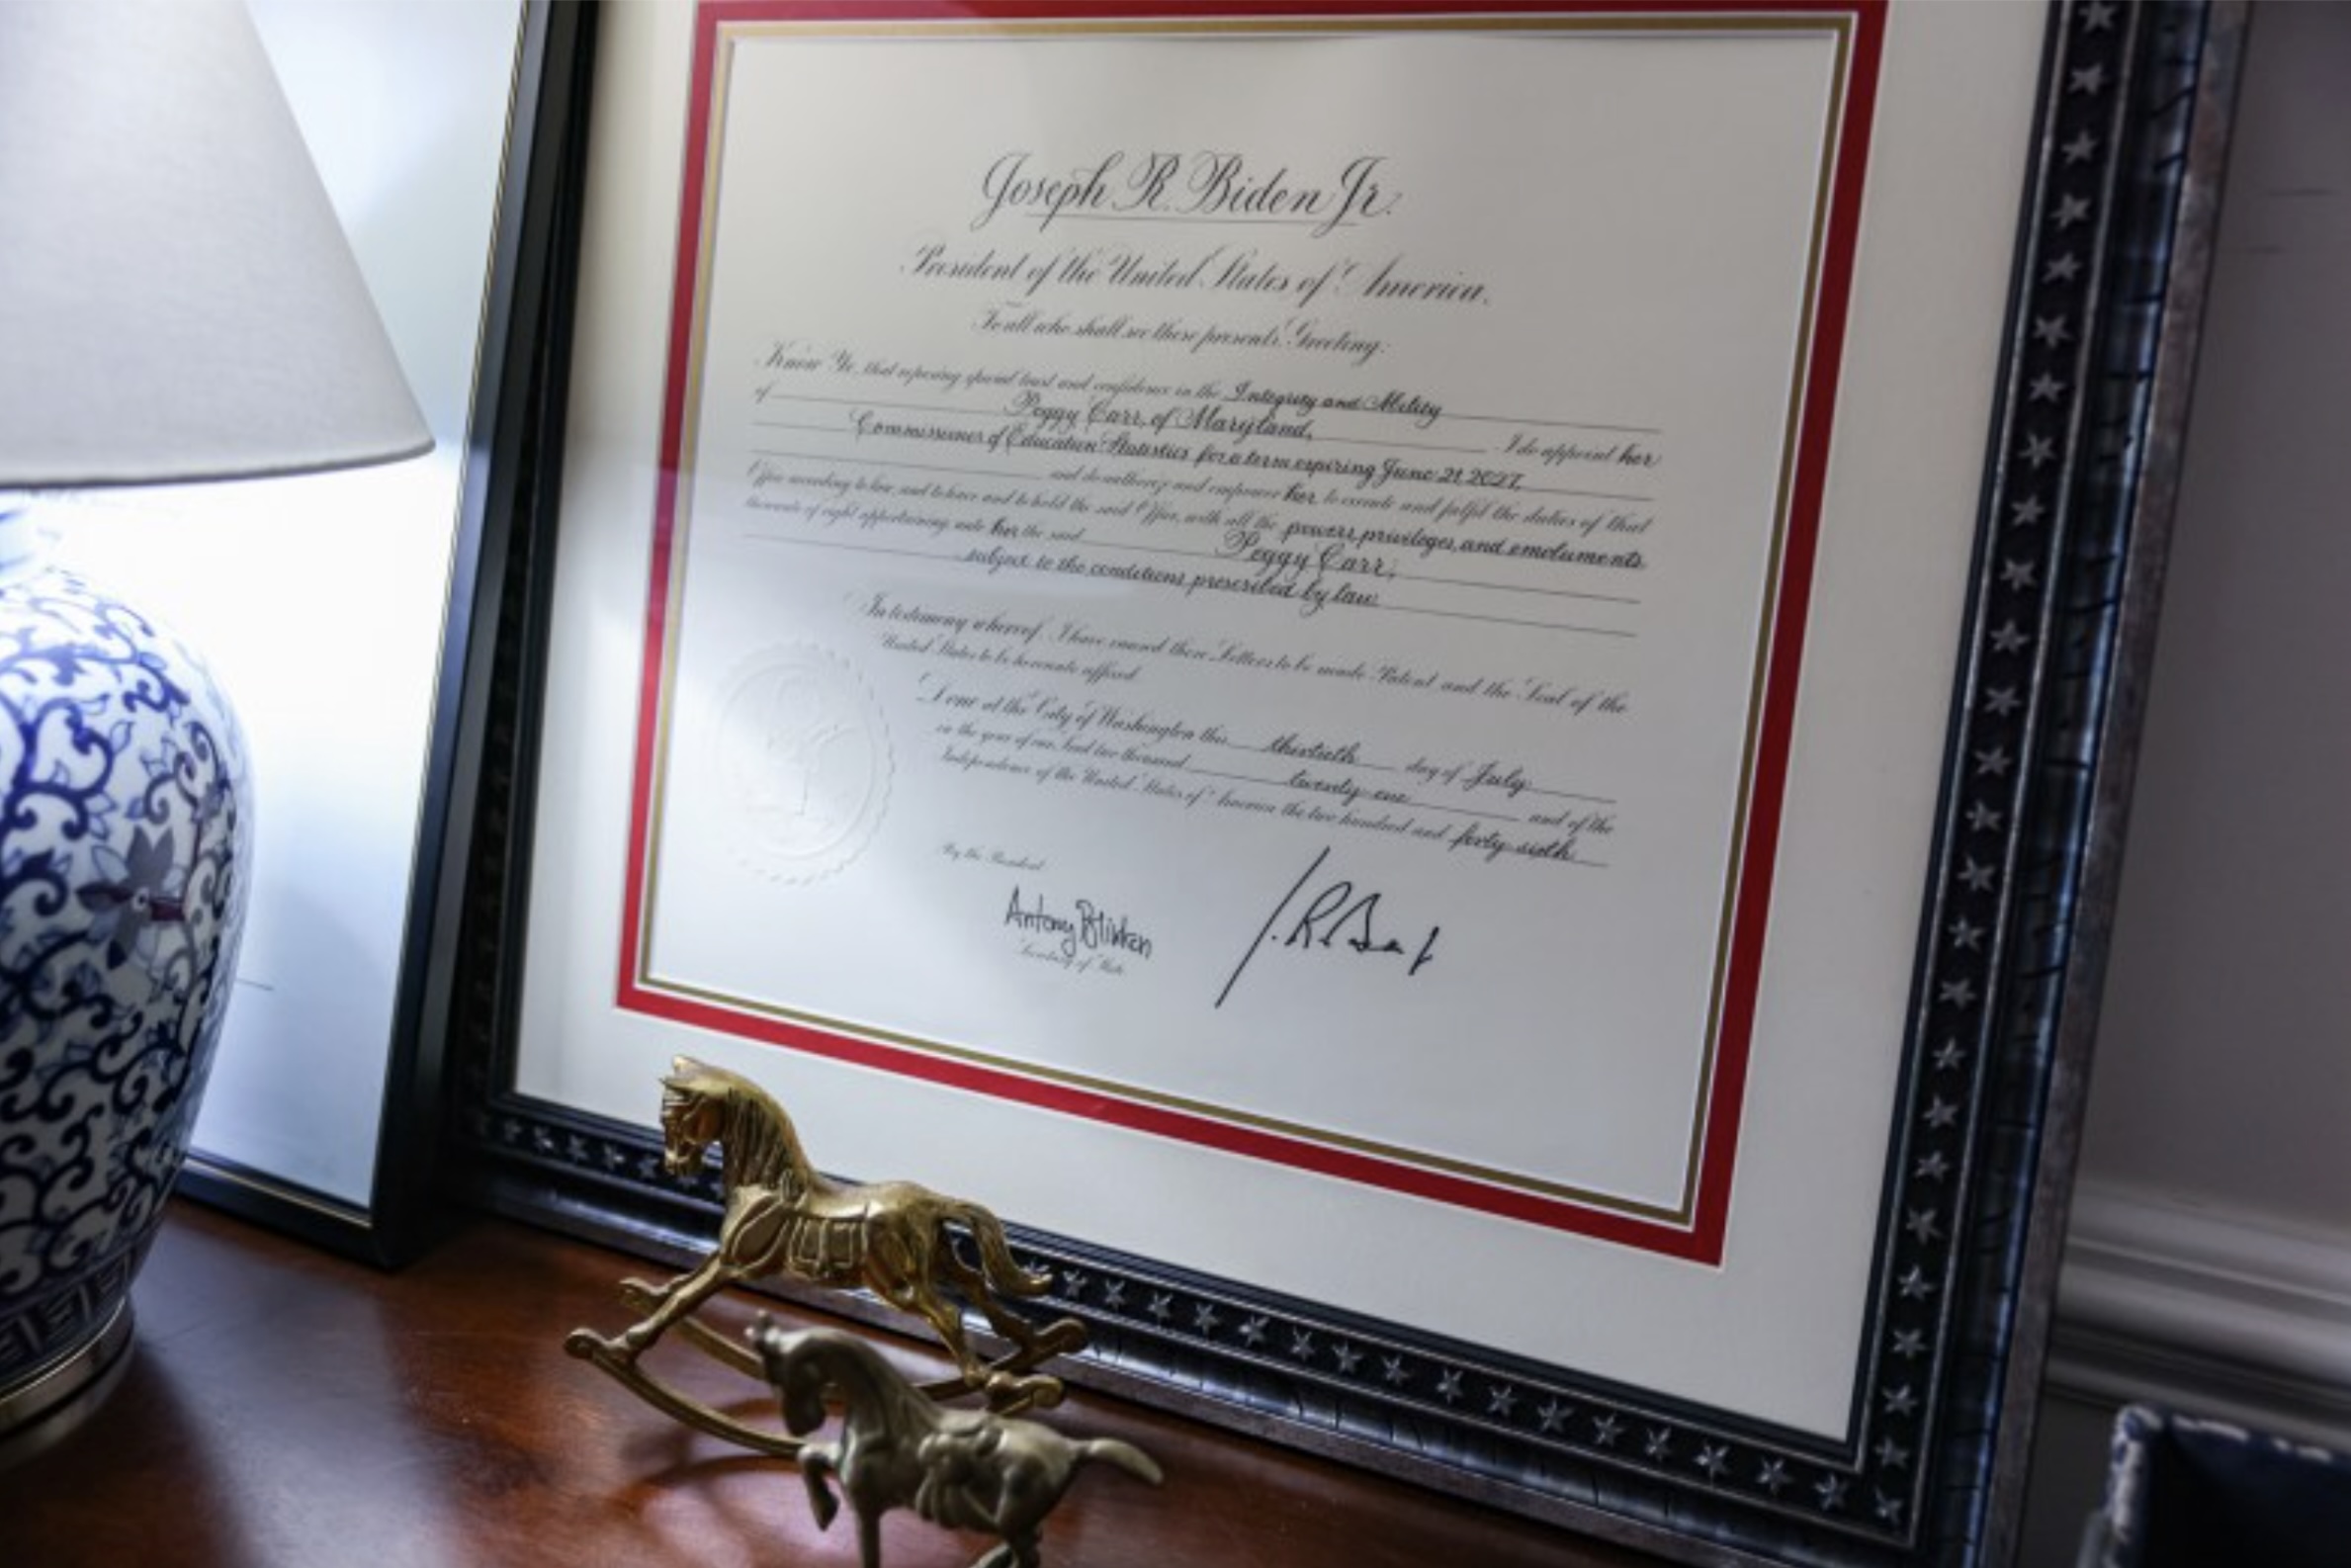 Joseph R. Biden Jr.
President of the United States of America.
To all who shall see these presents, Greeting:
Know Ye, that reposing special trust and confidence in the Integrity and Ability
of Peggy Carr, of Maryland, I do appoint her
Commissioner of Education Statistics for a term expiring June 21, 2027,
and do authorize and empower her to execute and fulfil the duties of that
Office according to law, and to have and to hold the said Office, with all the powers, privileges, and emoluments
thereunto of right appertaining, unto her the said Peggy Carr,
subject to the conditions prescribed by law.
In testimony whereof, I have caused these Letters to be made Patent and the Seal of the
United States to be hereunto affixed.
Done at the City of Washington this thirtieth day of July
in the year of our Lord two thousand twenty-one and of the
Independence of the United States of America the two hundred and forty-sixth.
By the President
Antony Blinken
Secretary of State